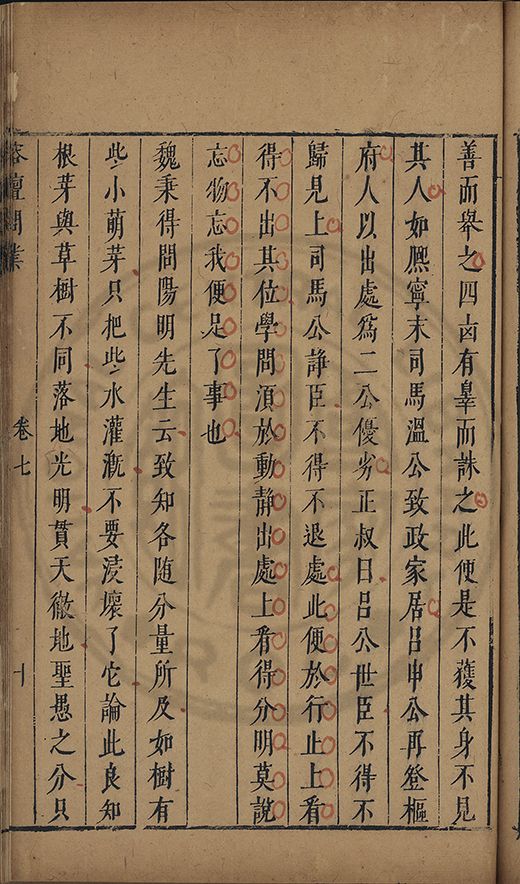 善而舉之四凶有辠而誅之此便是不獲其身不見
其人如熈寧末司馬溫公致政家居吕申公再登樞
府人以出處爲二公優劣正叔曰吕公世臣不得不
歸見上司馬公諍臣不得不退處此便於行止上看
得不出其位學問湏於動静出處上看得分明莫說
忘物忘我便足了事也
魏秉得問陽明先生云致知各随分量所及如樹有
些小萌芽只把些水灌漑不要浸壞了它論此良知
根芽與草樹不同落地光明貫天徹地聖愚之分只
榕壇問業
卷七
十